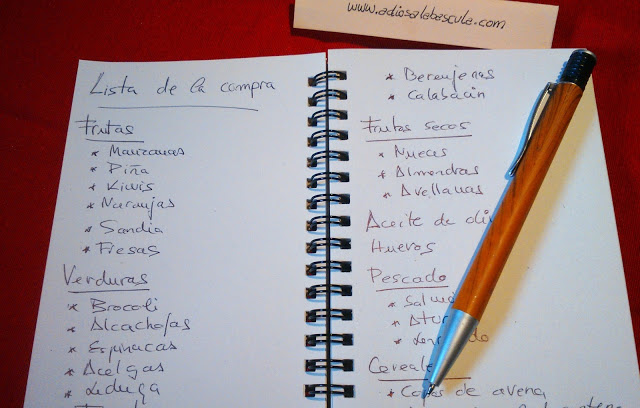 www.adiosalabascula.com
Lista de la compra
Frutas
* Manzanas
* Piña
* Kiwis
* Naranjas
* Sandia
* Fresas
Verduras
* Brocoli
* Alcachofas
* Espinacas
* Acelgas
* Lechuga
* Berenjenas
* Calabacin
Frutos secos
* Nueces
* Almendras
* Avellanas
Aceite de oli
Huevos
Pescado
* Salm
* Atu
* Len
Cereale
* Copos de avena